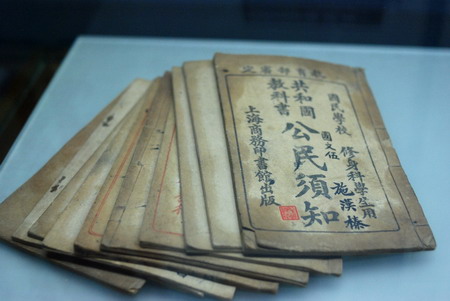 教育部審定
國民學校
修身科學生用
施漢榛
共和國
教科書
國文伍
公民須知
上海商務印書館出版